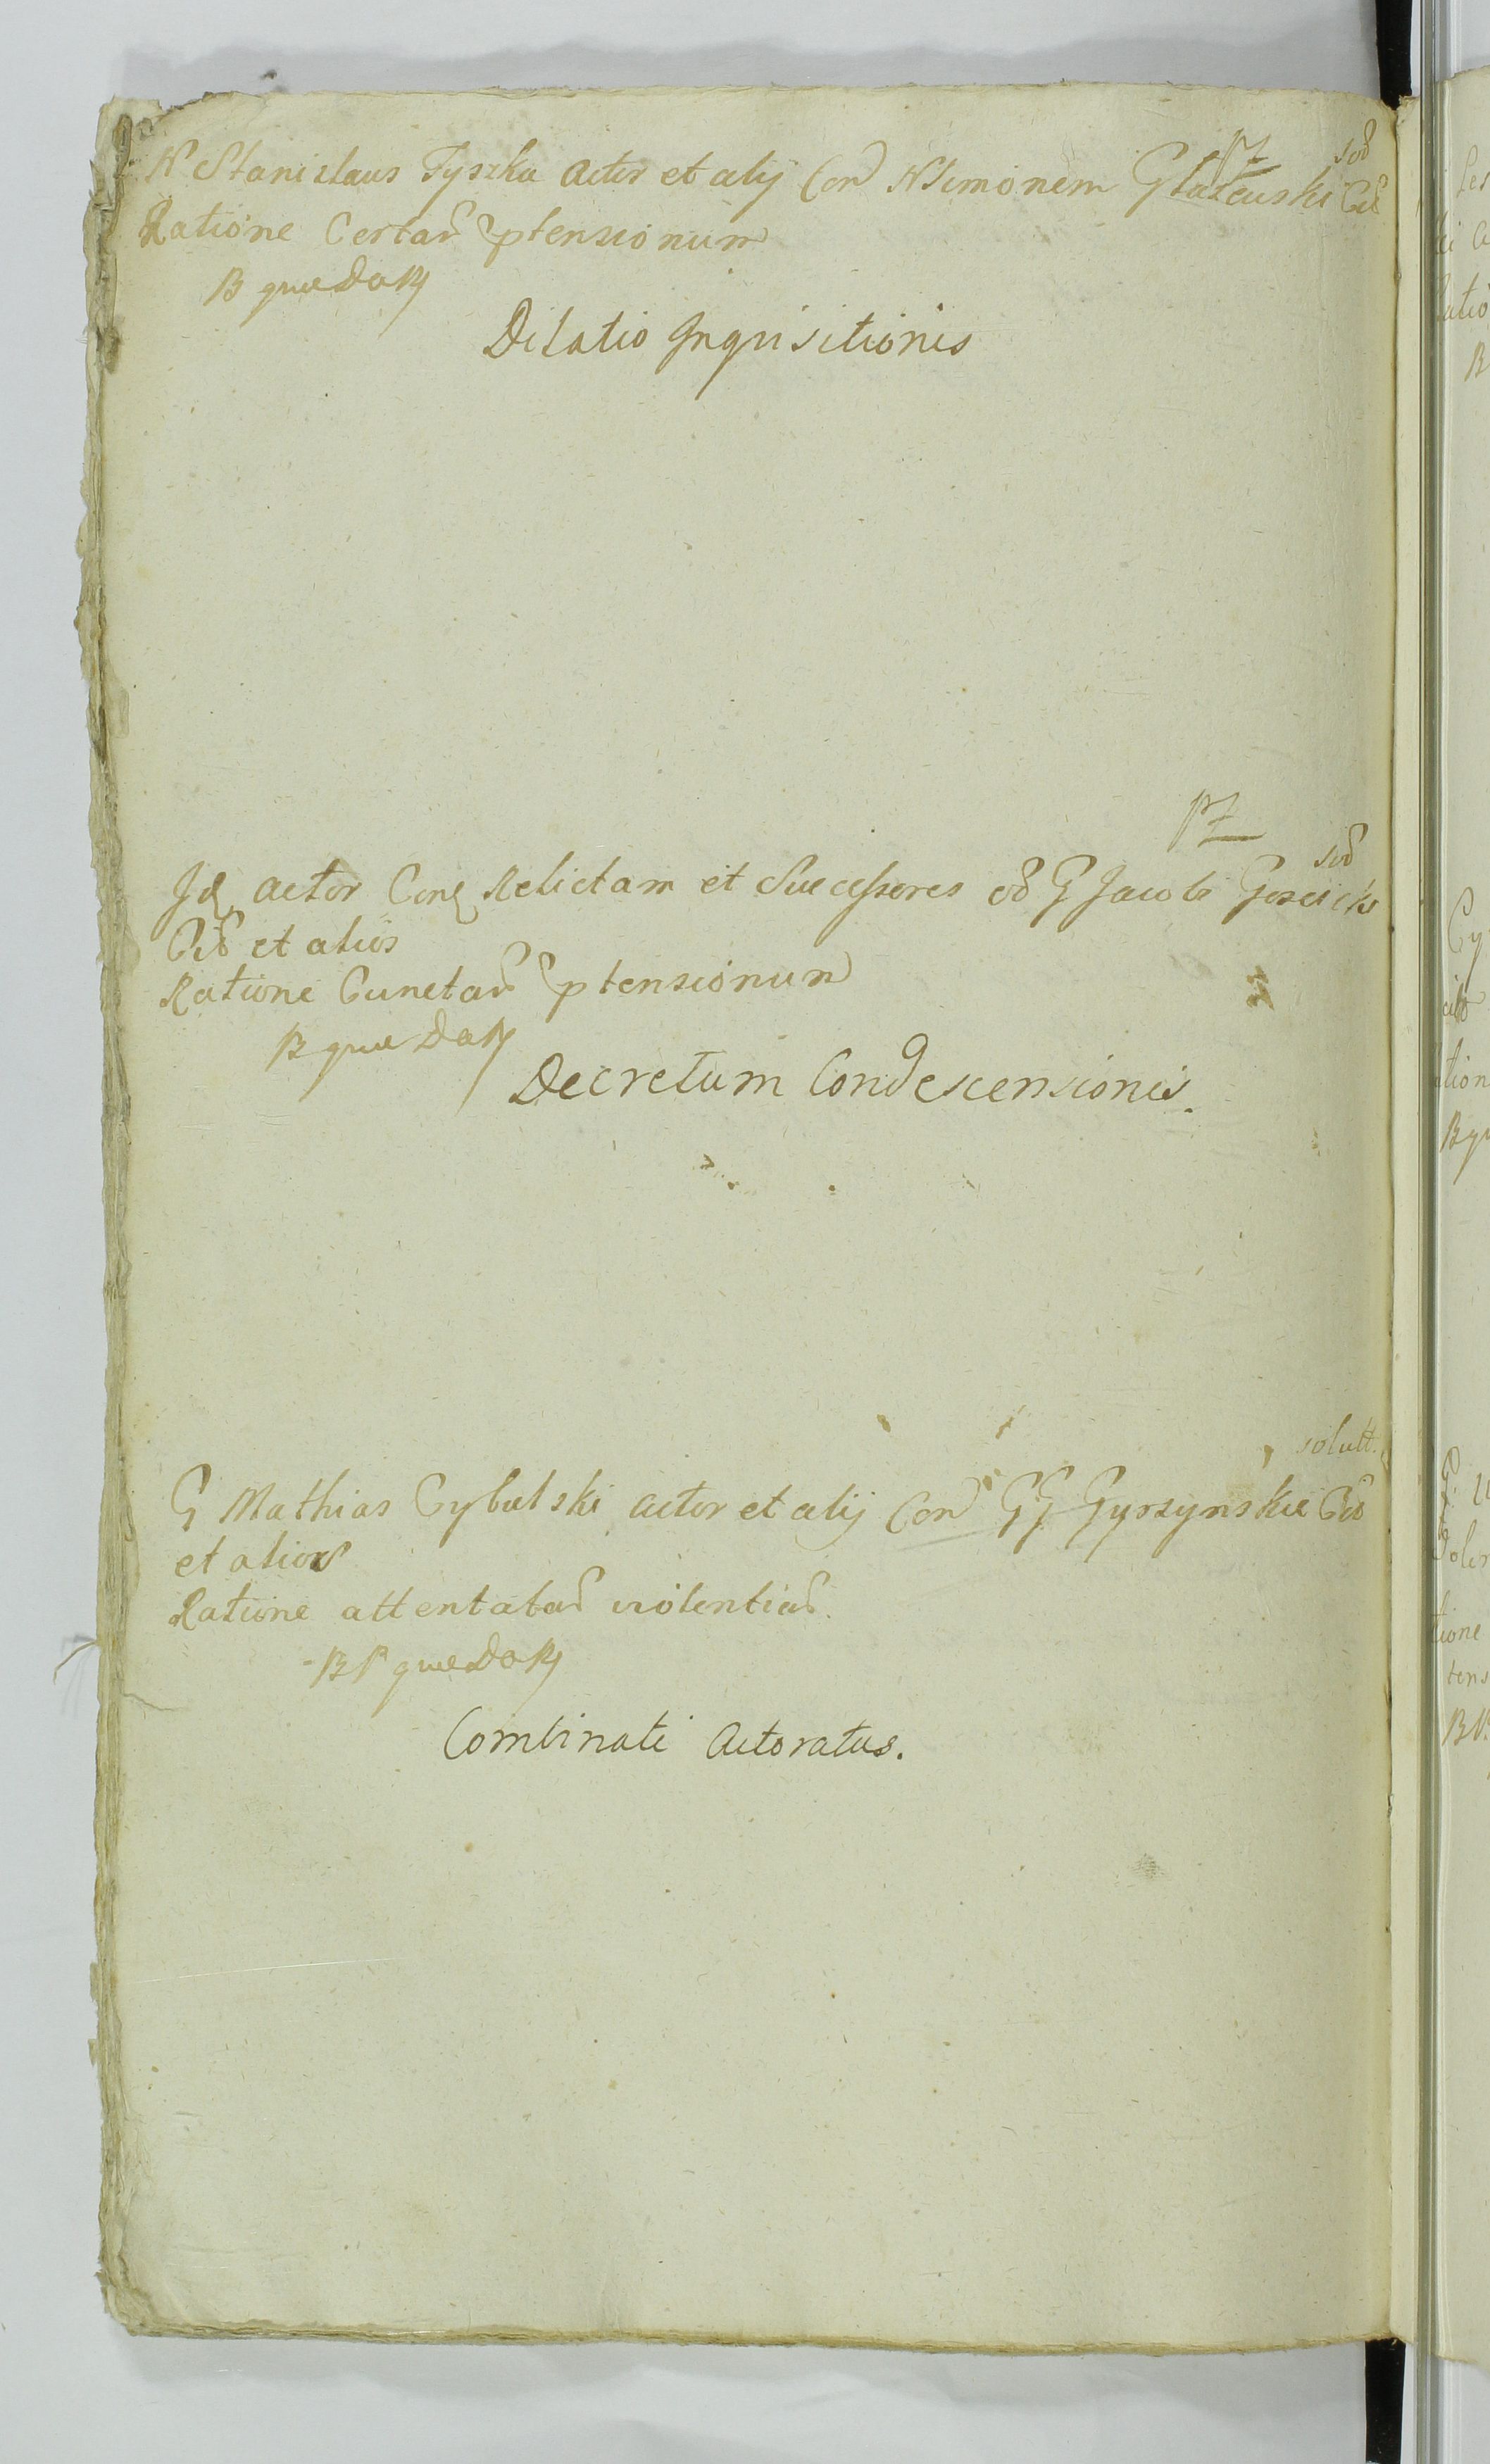 pt
sod
N Stanislaus Tyszka actor et alij Con N Simonem Glatewski Cit
Ratione Certar ptensionum
B quae Dary
Dilatio Inquisitionis
pt
sod
Id actor Conq Relictam et Successores od G Jacobi Goscicki
Cit et alios
Ratione Cunctar ptensionum
B quae Dary
Decretum Condescensionis.
solutt.
G Mathias Cybulski actor et alij Con GG Gyrzynskie Cit
et alios
Ratione attentatar violentiar.
BP quae Dary
Combinati Actoratus.